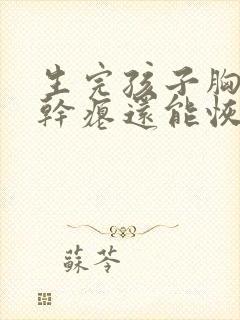 生完孩子胸
幹瘪還能恢
蘇苓